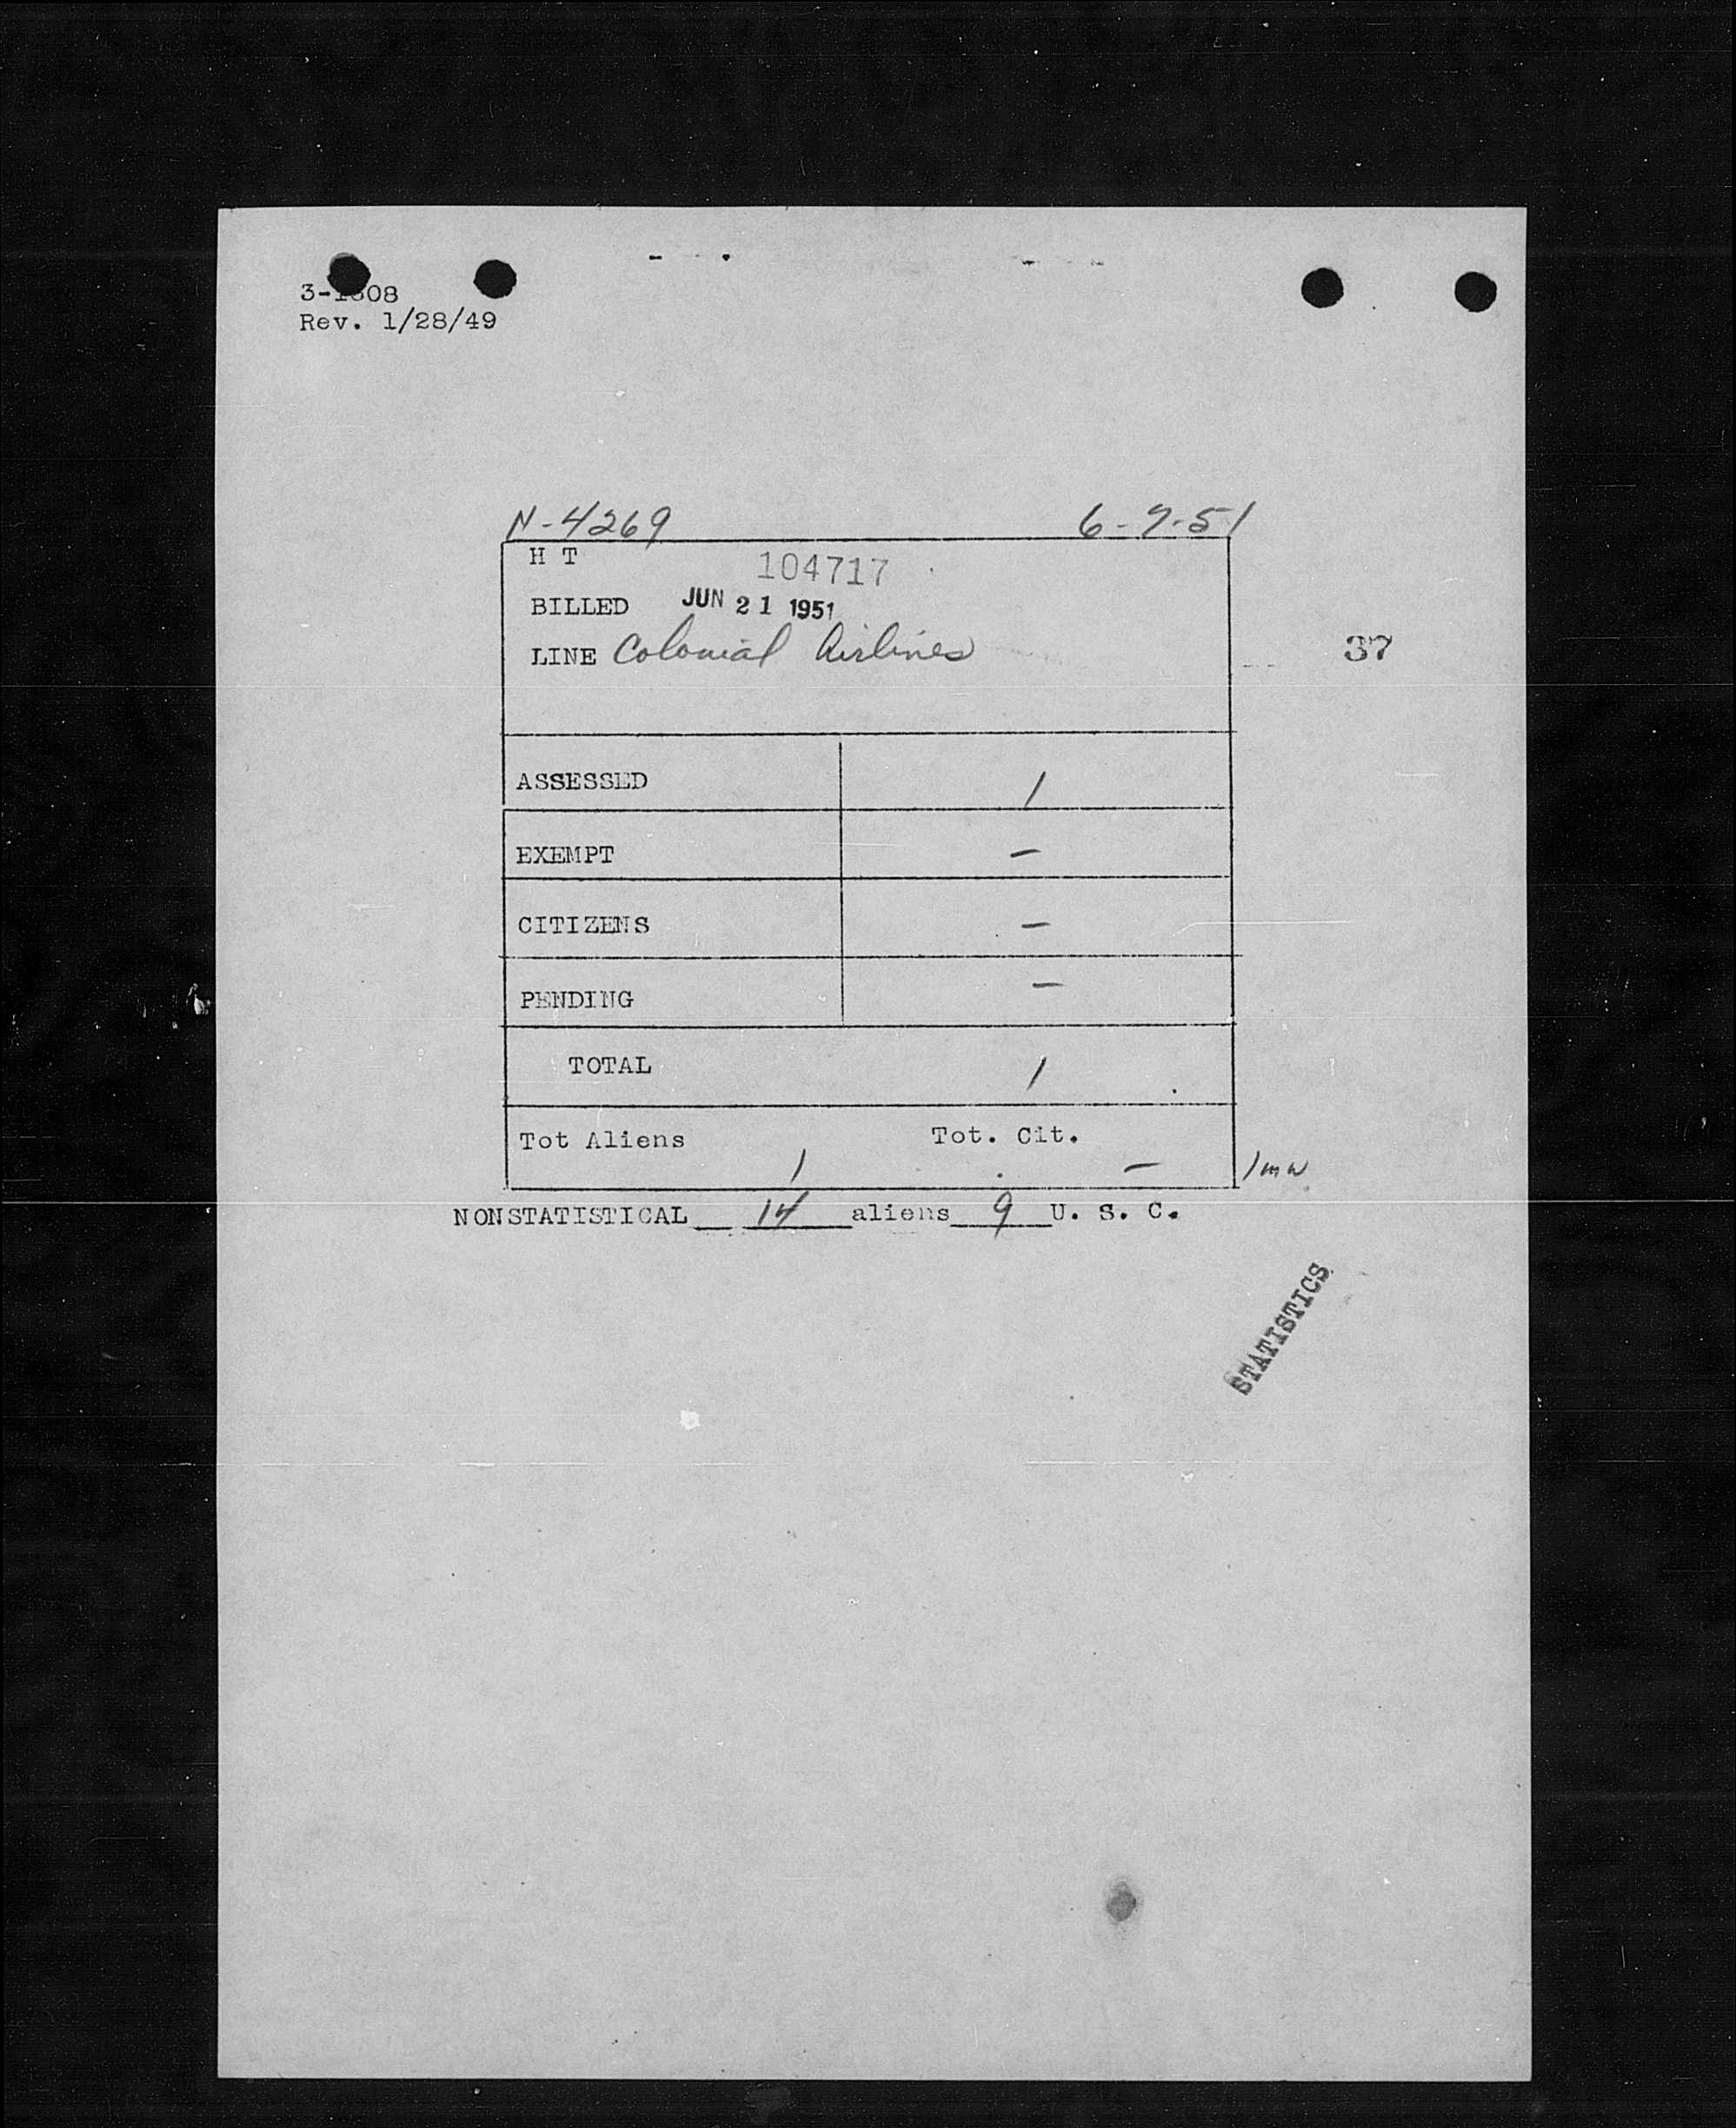 3-1608
Rev. 1/28/49
N-4269 6-7-51
H T 104717
BILLED JUN 21 1951
LINE Colonial Airlines
37
ASSESSED 1
EXEMPT -
CITIZENS -
PENDING -
TOTAL 1
Tot Aliens Tot. Cit.
1 - 1mw
NONSTATISTICAL 14 aliens 9 U. S. C.
STATISTICS